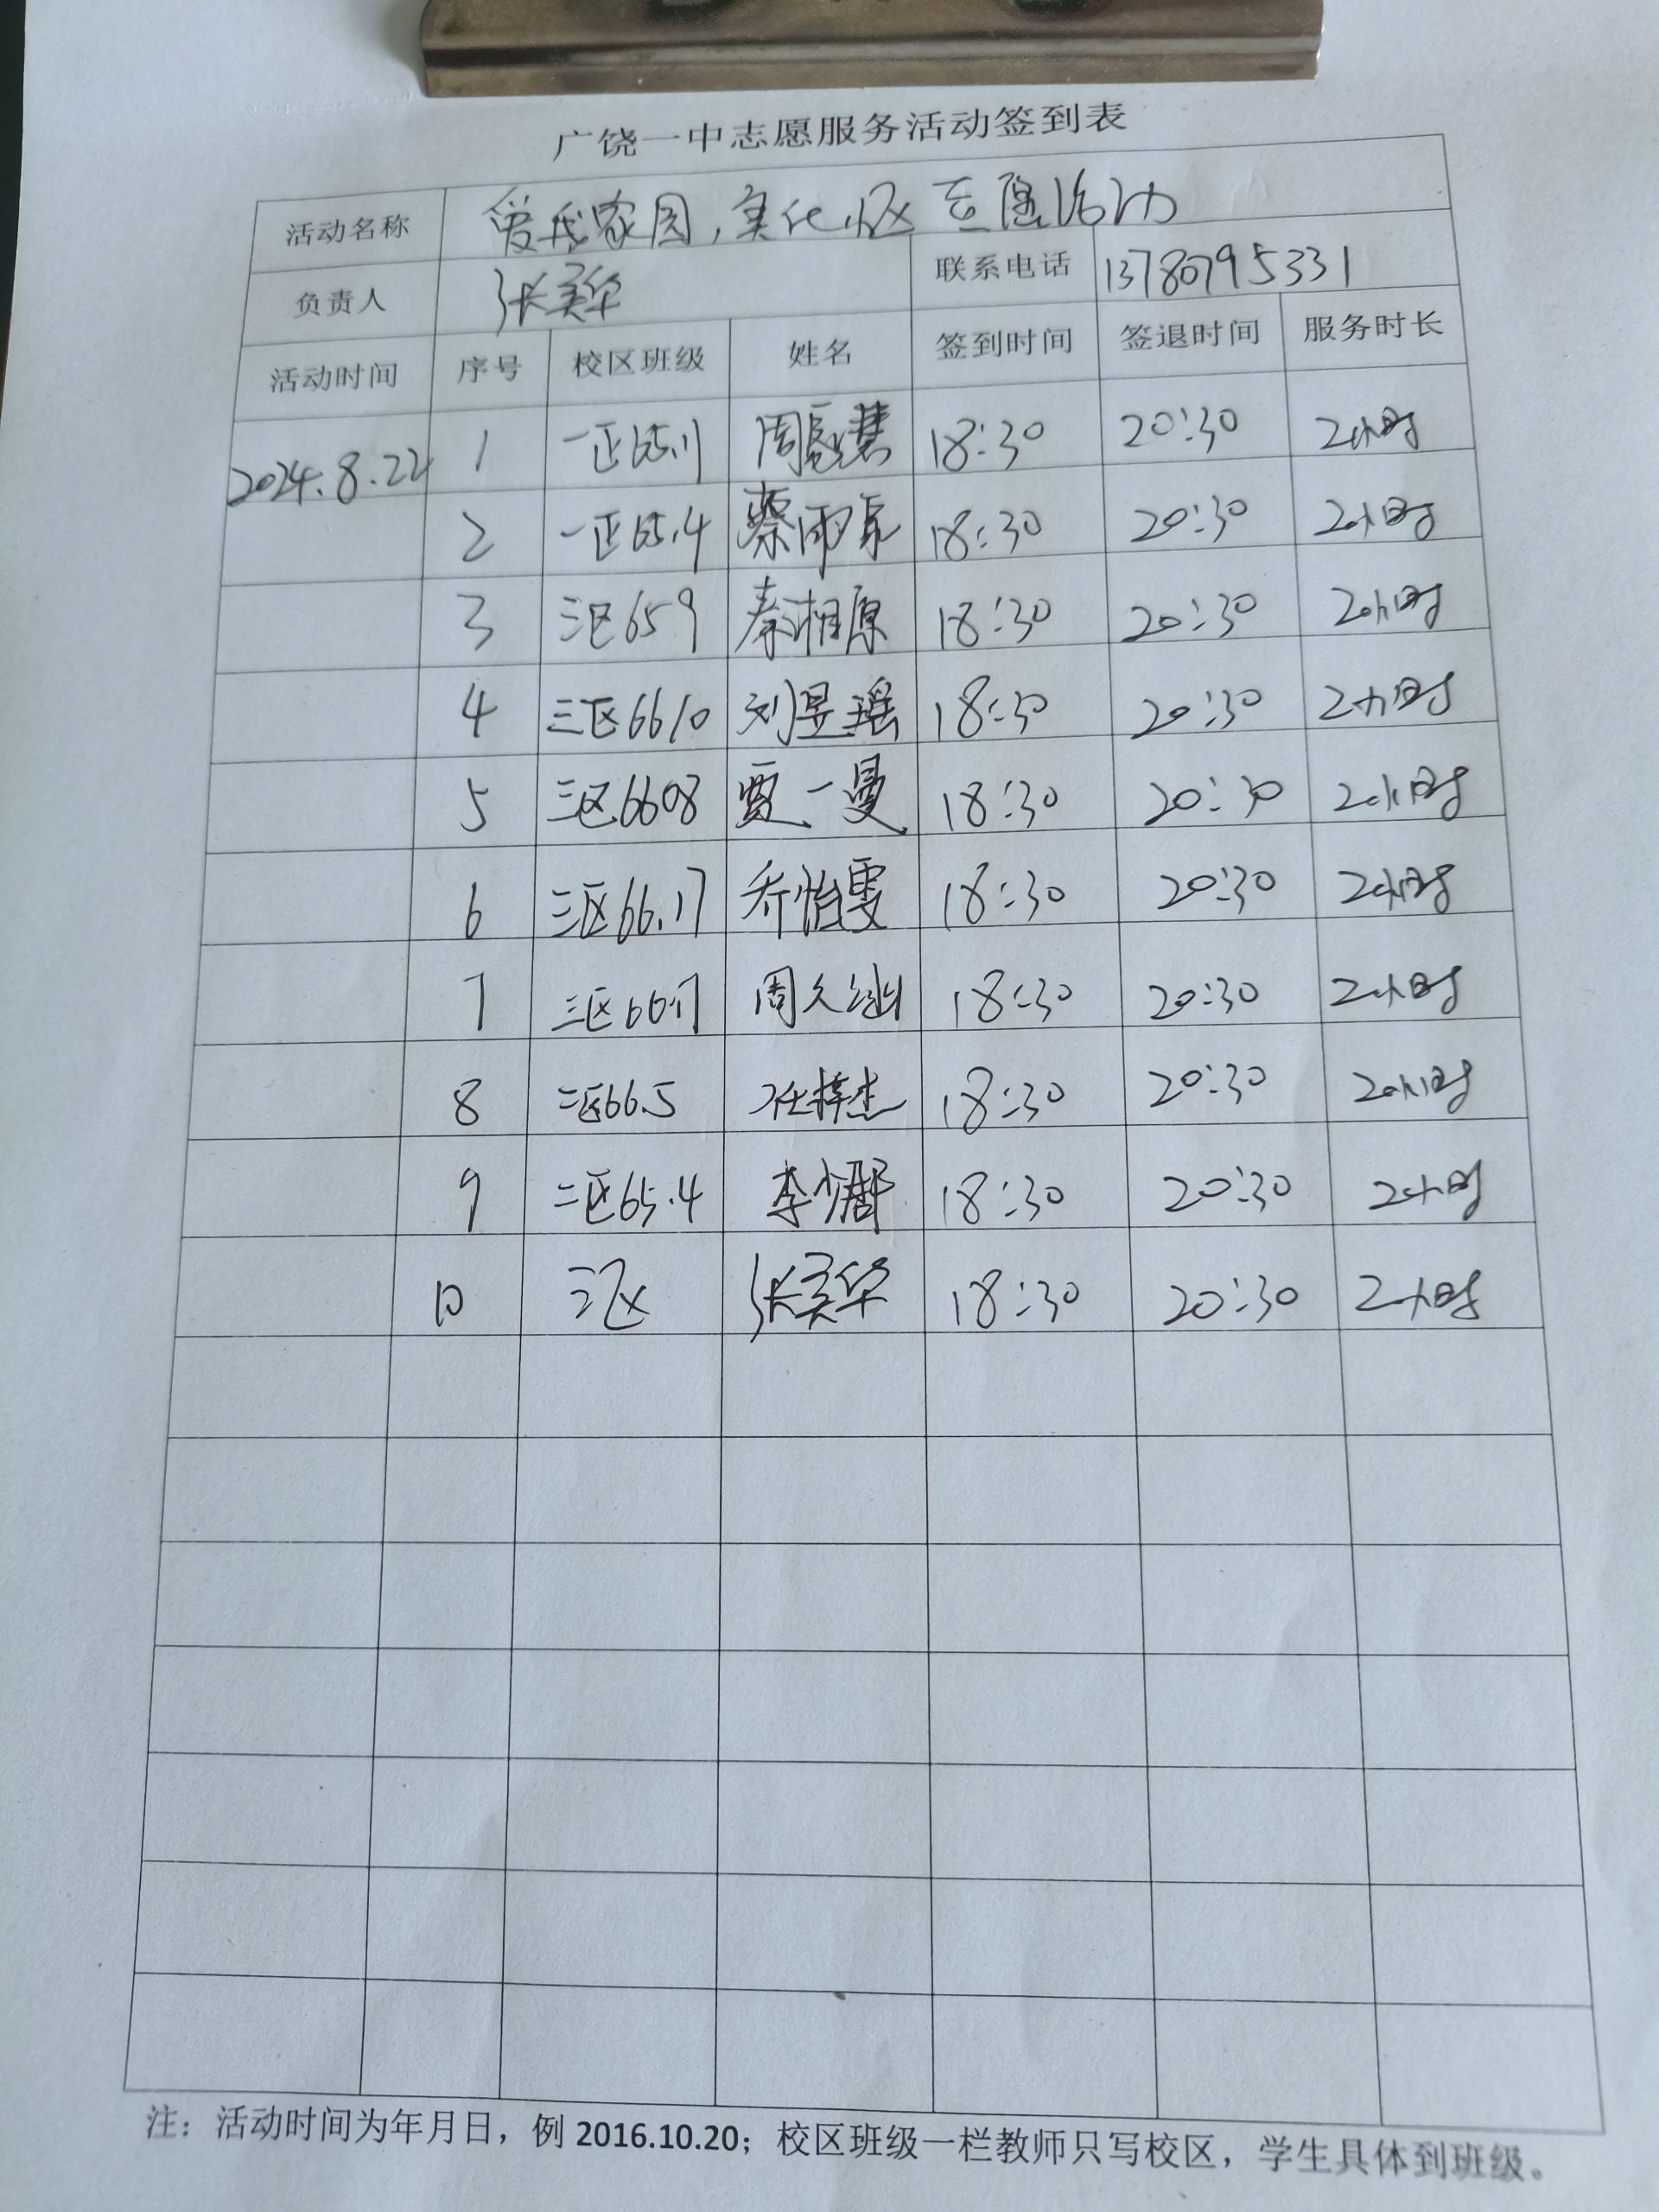 广饶一中志愿服务活动签到表
活动名称 爱我家园,美化小区志愿活动
负责人 张美华 联系电话 13780795331
活动时间 序号 校区班级 姓名 签到时间 签退时间 服务时长
2024.8.22 1 一区65.11 周慧 18:30 20:30 2小时
2 一区65.4 蔡雨 18:30 20:30 2小时
3 三区659 秦湘原 18:30 20:30 2小时
4 三区6610 刘昱瑶 18:30 20:30 2小时
5 三区6608 贾一曼 18:30 20:30 2小时
6 三区66.17 乔怡雯 18:30 20:30 2小时
7 三区66.17 周久 18:30 20:30 2小时
8 三区66.5 任梓杰 18:30 20:30 2小时
9 二区65.4 李少郡 18:30 20:30 2小时
10 三区 张美华 18:30 20:30 2小时
注：活动时间为年月日，例 2016.10.20；校区班级一栏教师只写校区，学生具体到班级。